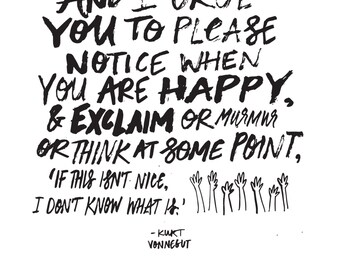 AND I URGE
YOU TO PLEASE
NOTICE WHEN
YOU ARE HAPPY,
& EXCLAIM OR MURMUR
OR THINK AT SOME POINT,
'IF THIS ISN'T NICE,
I DON'T KNOW WHAT IS.'
- KURT
VONNEGUT